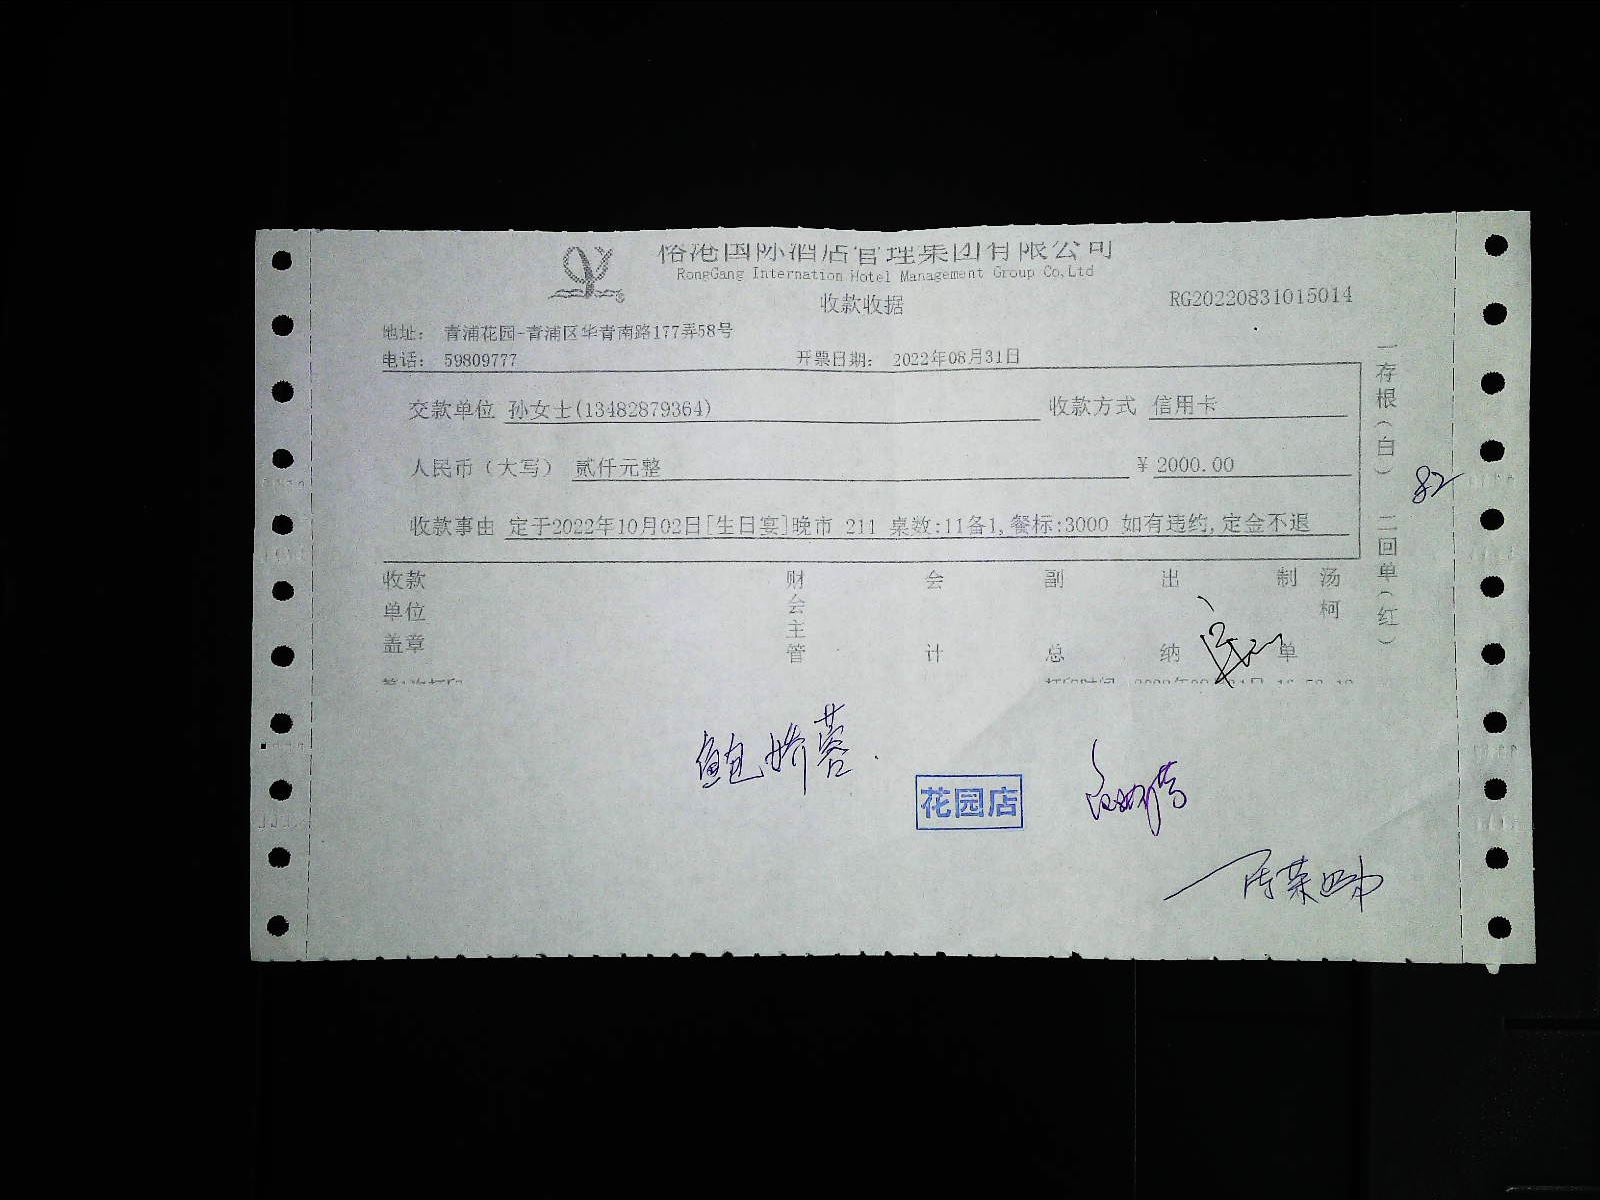 国际酒店管理集团有限公司
RongGang Internation Hotel Management Group Co,Ltd
收款收据
RG20220831015014
地址： 青浦花园-青浦区华青南路177弄58号
电话： 59809777
开票日期： 2022年08月31日
交款单位 孙女士(13482879364)
收款方式 信用卡
人民币（大写） 贰仟元整
¥ 2000.00
收款事由 定于2022年10月02日[生日宴]晚市 211 桌数:11备1,餐标:3000 如有违约,定金不退
收款单位盖章
财会主管
会计
副总
出纳
制单
汤柯
一存根（白） 二回单（红）
82
鲍娇蓉
花园店